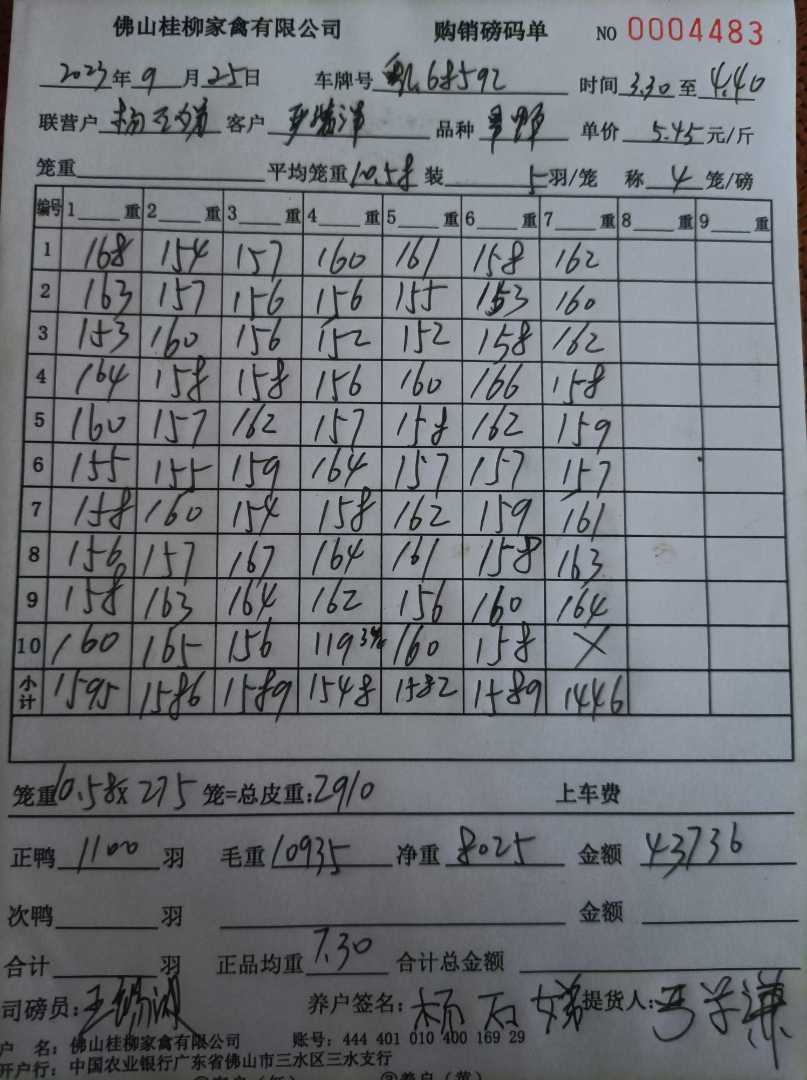 佛山桂柳家禽有限公司 购销磅码单 NO 0004483
2023年9月25日 车牌号 68592 时间3.30至4.40
联营户 杨 客户 品种 单价 5.45元/斤
笼重 平均笼重10.58装 5羽/笼 称 4 笼/磅
编号 1 重 2 重 3 重 4 重 5 重 6 重 7 重 8 重 9 重
1 168 154 157 160 161 158 162
2 163 157 156 156 155 153 160
3 153 160 156 152 152 158 162
4 164 158 158 156 160 166 158
5 160 157 162 157 158 162 159
6 155 155 159 164 157 157 157
7 158 160 154 158 162 159 161
8 156 157 167 164 161 158 163
9 158 163 164 162 156 160 164
10 160 165 156 119 160 158 X
小计 1595 1586 1589 1548 1582 1589 1446
笼重10.58x275笼=总皮重:2910 上车费
正鸭 1100 羽 毛重 10935 净重 8025 金额 43736
次鸭 羽 金额
合计 羽 正品均重 7.30 合计总金额
司磅员: 王 养户签名: 杨 提货人:
户 名: 佛山桂柳家禽有限公司 账号: 444 401 010 400 169 29
开户行: 中国农业银行广东省佛山市三水区三水支行